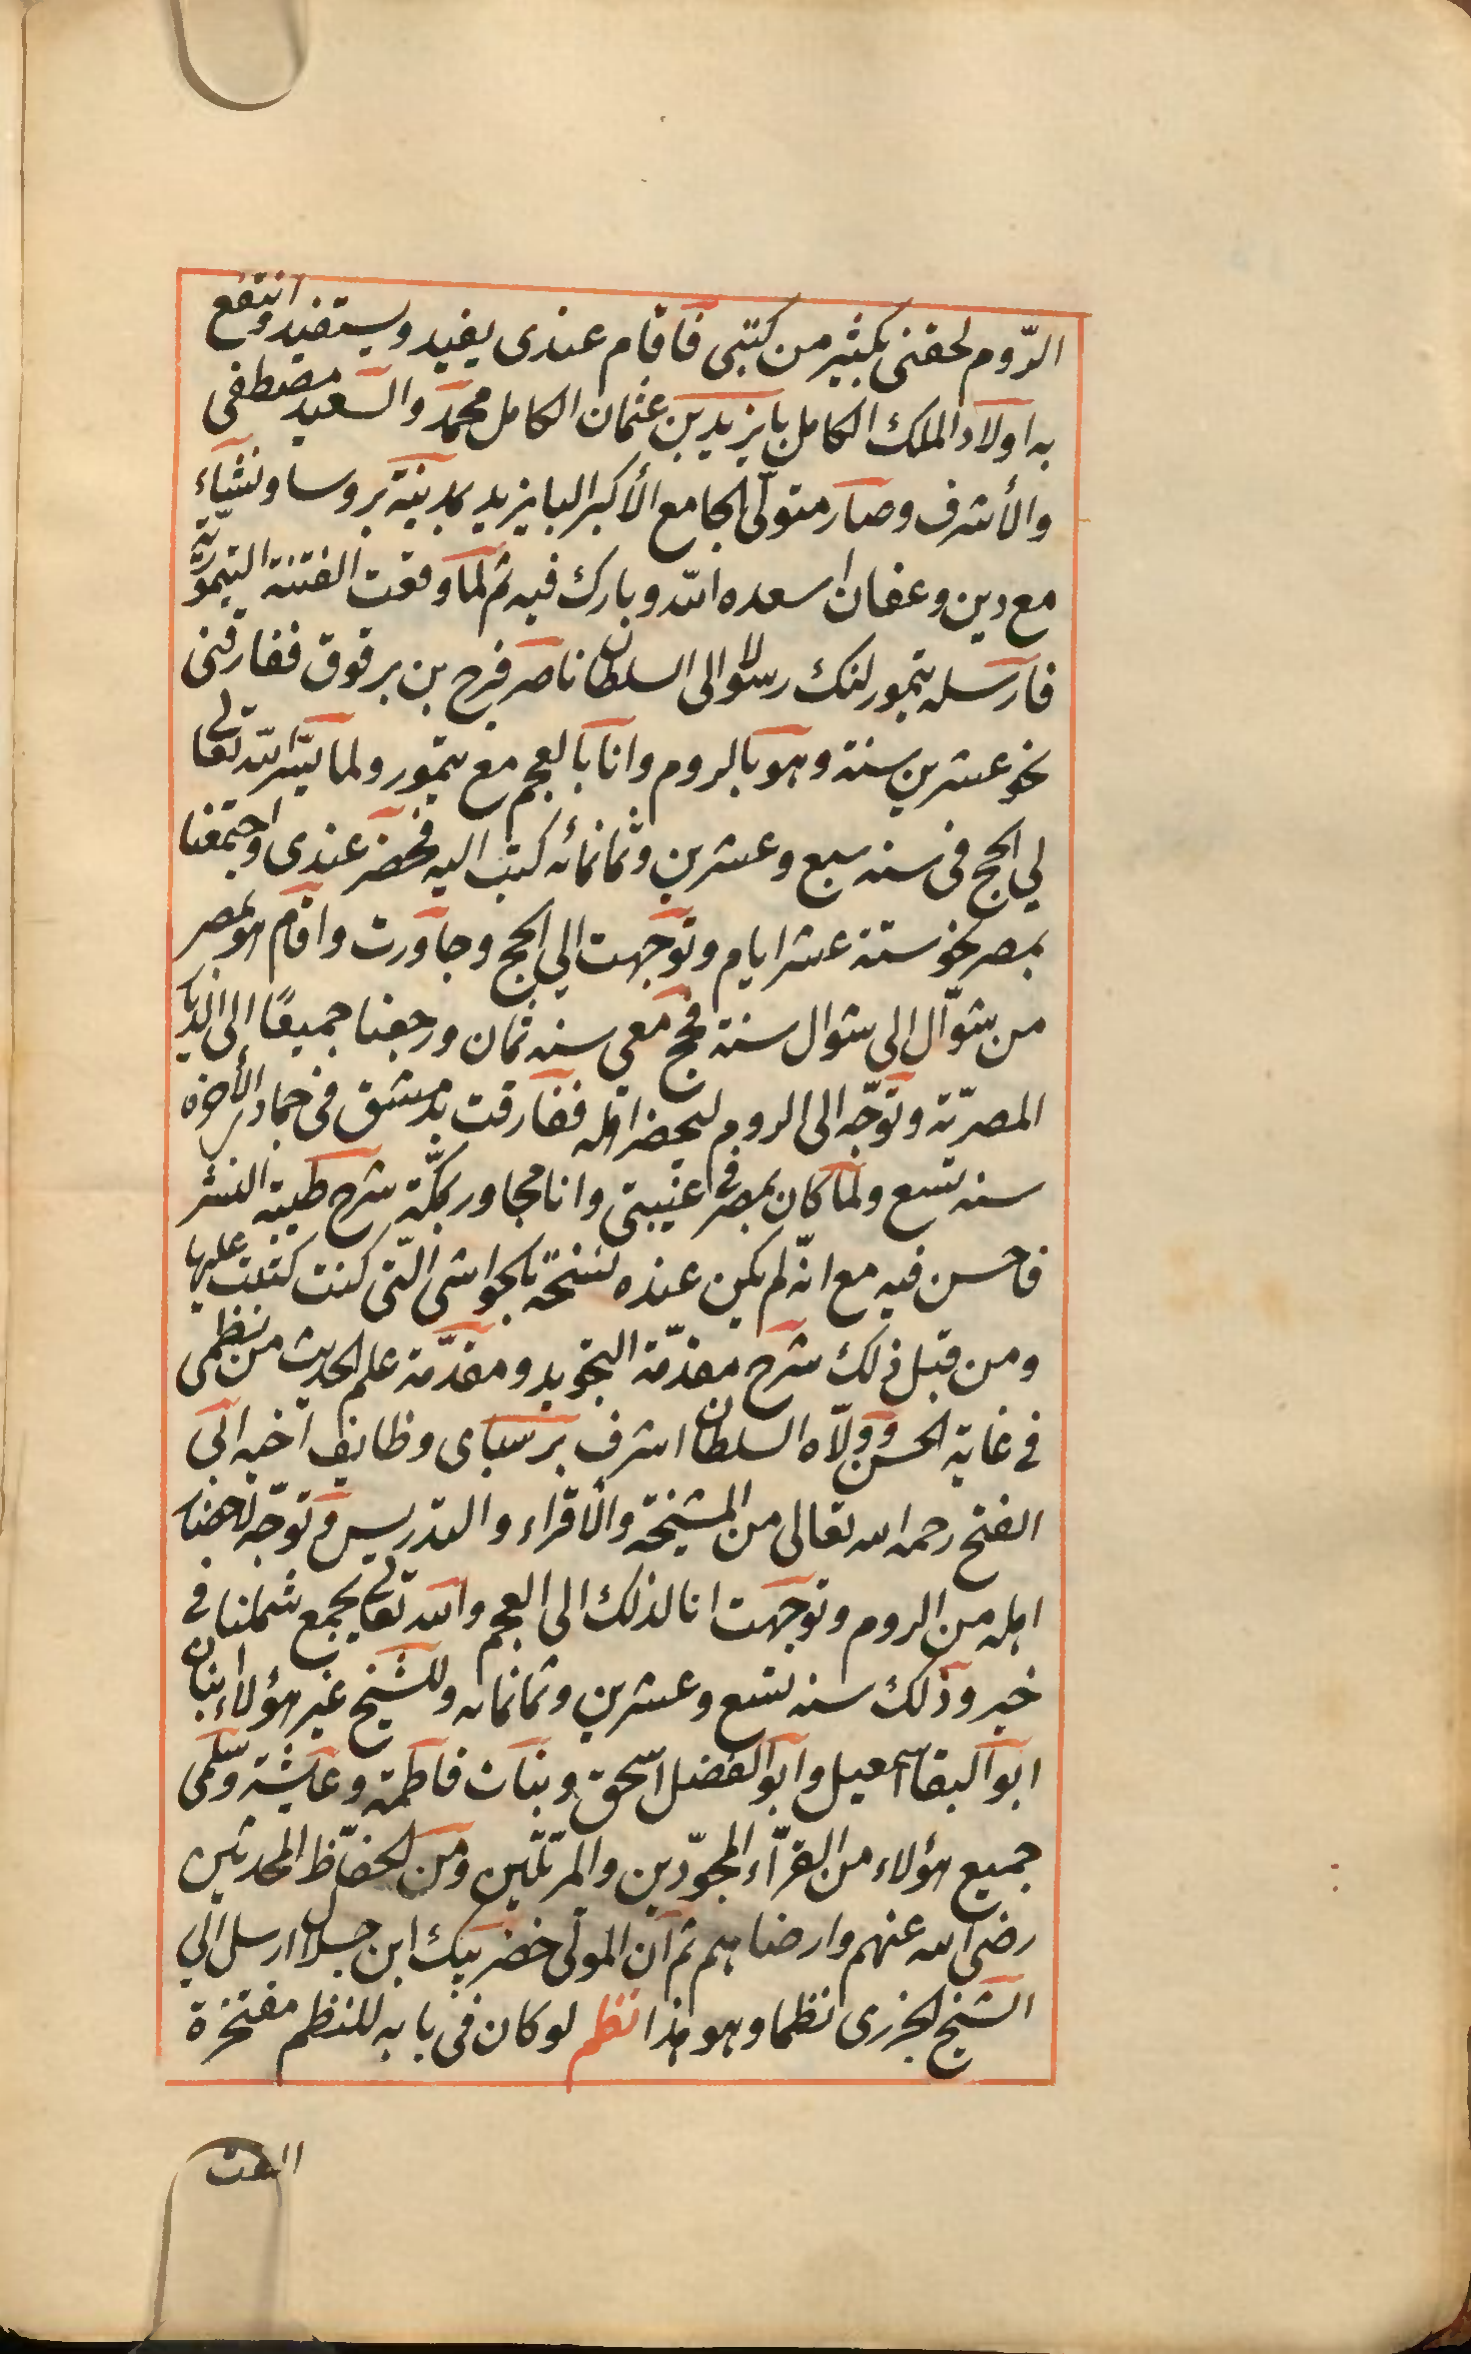 الرّوم لحقنى بكثير من كتبى فاقام عندى يفيد ويستفيد وانتفع
به اولاد الملك الكامل بايزيد بن عثمان الكامل محمد والسعيد مصطفى
والأشرف وصار متولّى الجامع الأكبر البايزيد بمدينة بروسا ونشاء
مع دين وعفان اسعده الله وبارك فيه ثم لما وقعت الفتنة التيمورية
فارسله تيمور لنك رسولا الى السلطان ناصر فرج بن برقوق ففارقنى
نحو عشرين سنة وهو بالروم وانا بالعجم مع تيمور ولما يسّر الله تعالى
لي الحج فى سنه سبع وعشرين وثمانمائه كتب اليه فحضر عندى واجتمعنا
بمصر نحو ستة عشر ايام وتوجهت الي الحج وجاورت واقام هو بمصر
من شوّال الى شوال سنة فحج معي سنه ثمان ورجعنا جميعًا الى الديار
المصرّية وتوجّه الى الروم ليحضر اهله ففارقت بدمشق فى جمادى الأخره
سنه تسع ولما كان بمصر في غيبتى وانا مجاور بمكّة شرح طيبة النشر
فاحسن فيه مع انّه لم يكن عنده نسخة بالحواشى التى كنت كتبت عليها
ومن قبل ذلك شرح مقدّمة التجويد ومقدّمة علم الحديث من نظمى
فى غاية الحسن وولّاه السلطان اشرف برسباى وظايف اخيه ابى
الفتح رحمه الله تعالى من المشيخة والاقراء والتدريس وتوجّه لاحضار
اهله من الروم وتوجهت انا لذلك الى العجم والله تعالى يجمع شملنا فى
خير وذلك سنه تسع وعشرين وثمانمائه وللشيخ غير هؤلاء ابنان
ابو البقا اسمعيل وابو الفضل اسحق وبنات فاطمة وعايشة وسلمى
جميع هؤلاء من القرآء المجوّدين والمرتلّين ومن الحفّاظ المحدثين
رضى الله عنهم وارضاهم ثم ان المولى خضر بيك ابن جلال ارسل الي
الشيخ الجزرى نظما وهو هذا نظم لو كان فى بابه للنظم مفتخرة